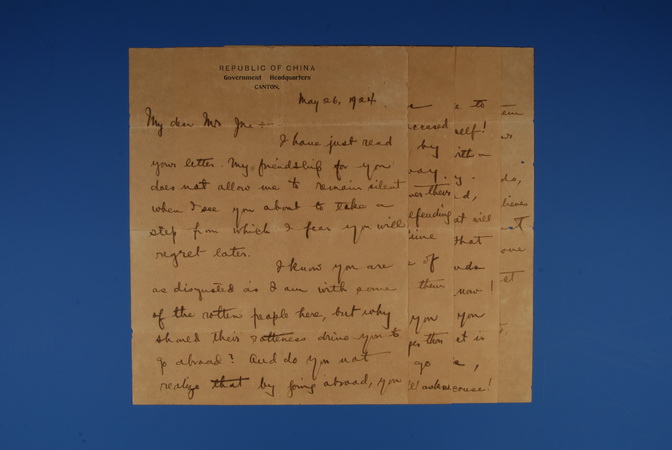 REPUBLIC OF CHINA
Government Headquarters
CANTON.
May 26, 1924.
My dear Mr.
I have just read
your letter. My friendship for you
does not allow me to remain silent
when I see you about to take a
step from which I fear you will
regret later.
I know you are
as disgusted as I am with some
of the rotten people here, but why
should their rotteness drive you to
go abroad? And do you not
realize that by going abroad, you
to
self!
by
efending
at will
that
of
now!
you you
et is
go